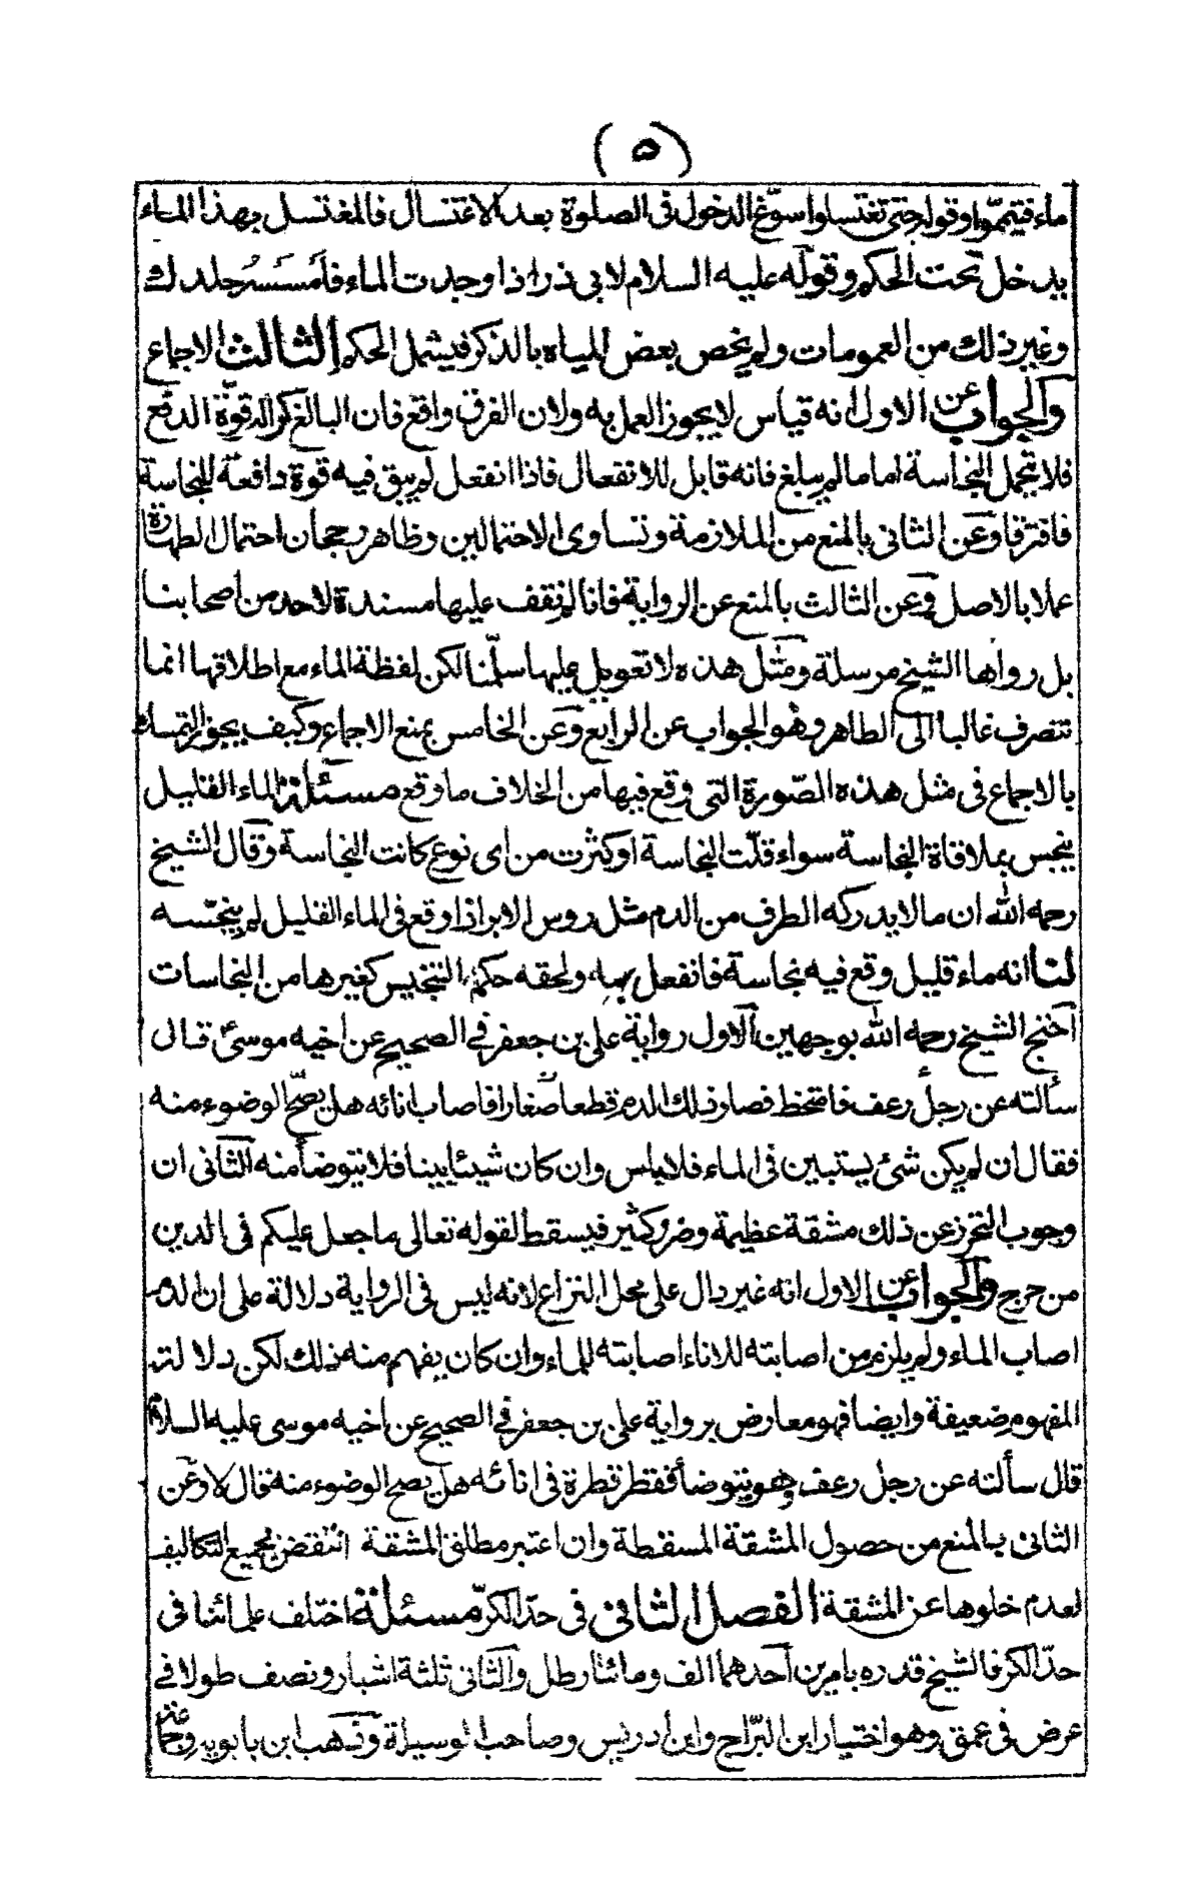 (٥)
ماء فتيمّموا وقوله حتى تغتسلوا سوّغ الدخول فى الصلوة بعد الاغتسال فالمغتسل بهذا الماء
يدخل تحت الحكم وقوله عليه السلام لابى ذر اذا وجدت الماء فأمسسه جلدك
وغير ذلك من العمومات ولم يخص بعض المياه بالذكر فيشمل الحكم الثالث الاجماع
والجواب عن الاول انه قياس لا يجوز العمل به ولان الفرق واقع فان البالغ كرا له قوّة الدفع
فلا تتحمل النجاسة اما ما لم يبلغ فانه قابل للانفعال فاذا انفعل لم يبق فيه قوة دافعة للنجاسة
فافترقا وعن الثانى بالمنع من الملازمة وتساوى الاحتمالين وظاهر رجحان احتمال الطهارة
عملا بالاصل وعن الثالث بالمنع عن الرواية فانا لم نقف عليها مسندة لاحد من اصحابنا
بل رواها الشيخ مرسلة ومثل هذه لا تعويل عليها سلّمنا لكن لفظة الماء مع اطلاقها انما
تتصرف غالبا الى الطاهر وهو الجواب عن الرابع وعن الخامس بمنع الاجماع وكيف يجوز التمسك
بالاجماع فى مثل هذه الصّورة التى وقع فيها من الخلاف ما وقع مسئلة الماء القليل
ينجس بملاقاة النجاسة سواء قلّت النجاسة او كثرت من اى نوع كانت النجاسة وقال الشيخ
رحمه الله ان ما لا يدركه الطرف من الدم مثل رؤس الابر اذا وقع فى الماء القليل لم ينجّسه
لنا انه ماء قليل وقع فيه نجاسة فانفعل بها ولحقه حكم التنجيس كغيرها من النجاسات
احتج الشيخ رحمه الله بوجهين الاول رواية على بن جعفر فى الصحيح عن اخيه موسى ع قال
سألته عن رجل رعف فامتخط فصار ذلك الدم قطعا صغارا فاصاب انائه هل يصّح الوضوء منه
فقال ان لم يكن شئ يستبين فى الماء فلا باس وان كان شيئا بينا فلا تتوضأ منه الثانى ان
وجوب التحرز عن ذلك مشقة عظيمة وضرر كثير فيسقط لقوله تعالى ما جعل عليكم فى الدين
من حرج والجواب عن الاول انه غير دال على محل النزاع لانه ليس فى الرواية دلالة على ان الدم
اصاب الماء ولم يلزم من اصابته للاناء اصابته للماء وان كان يفهم منه ذلك لكن دلالة
المفهوم ضعيفة وايضا فهو معارض برواية على بن جعفر فى الصحيح عن اخيه موسى عليه السلام
قال سألته عن رجل رعف وهو يتوضأ فقطر قطرة فى انائه هل يصح الوضوء منه قال لا وعن
الثانى بالمنع من حصول المشقة المسقطة وان اعتبر مطلق المشقة انتقض بجميع التكاليف
لعدم خلوها عن المشقة الفصل الثانى فى حدّ الكرّ مسئلة اختلف علمائنا فى
حدّ الكر فالشيخ قدره بامرين احدهما الف ومائتا رطل والثانى ثلثة اشبار ونصف طولا فى
عرض فى عمق وهو اختيار ابن البرّاج وابن ادريس وصاحب الوسيلة وذهب ابن بابويه وجماعة